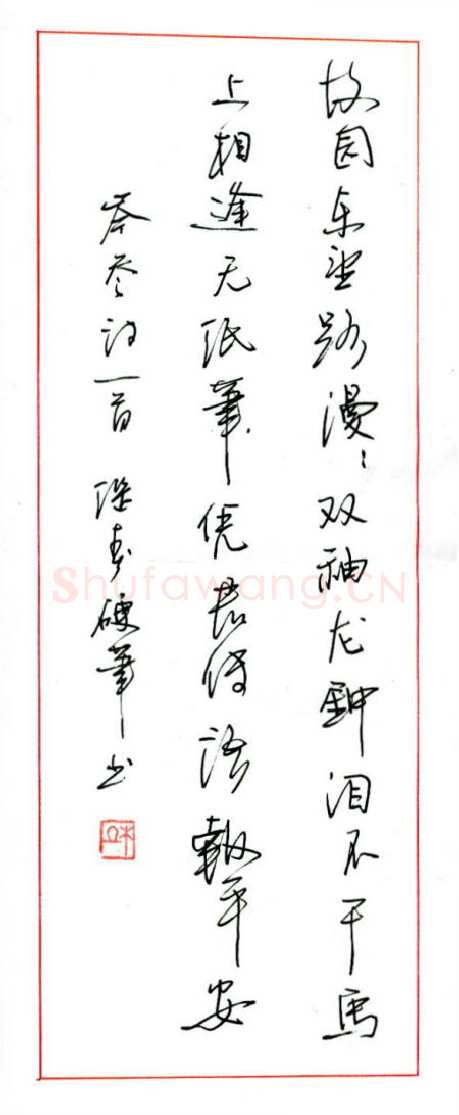 故园东望路漫〻双袖龙钟泪不干馬
上相逢无纸筆凭君传语報平安
岑参诗一首 硬筆书
Shufawang.CN